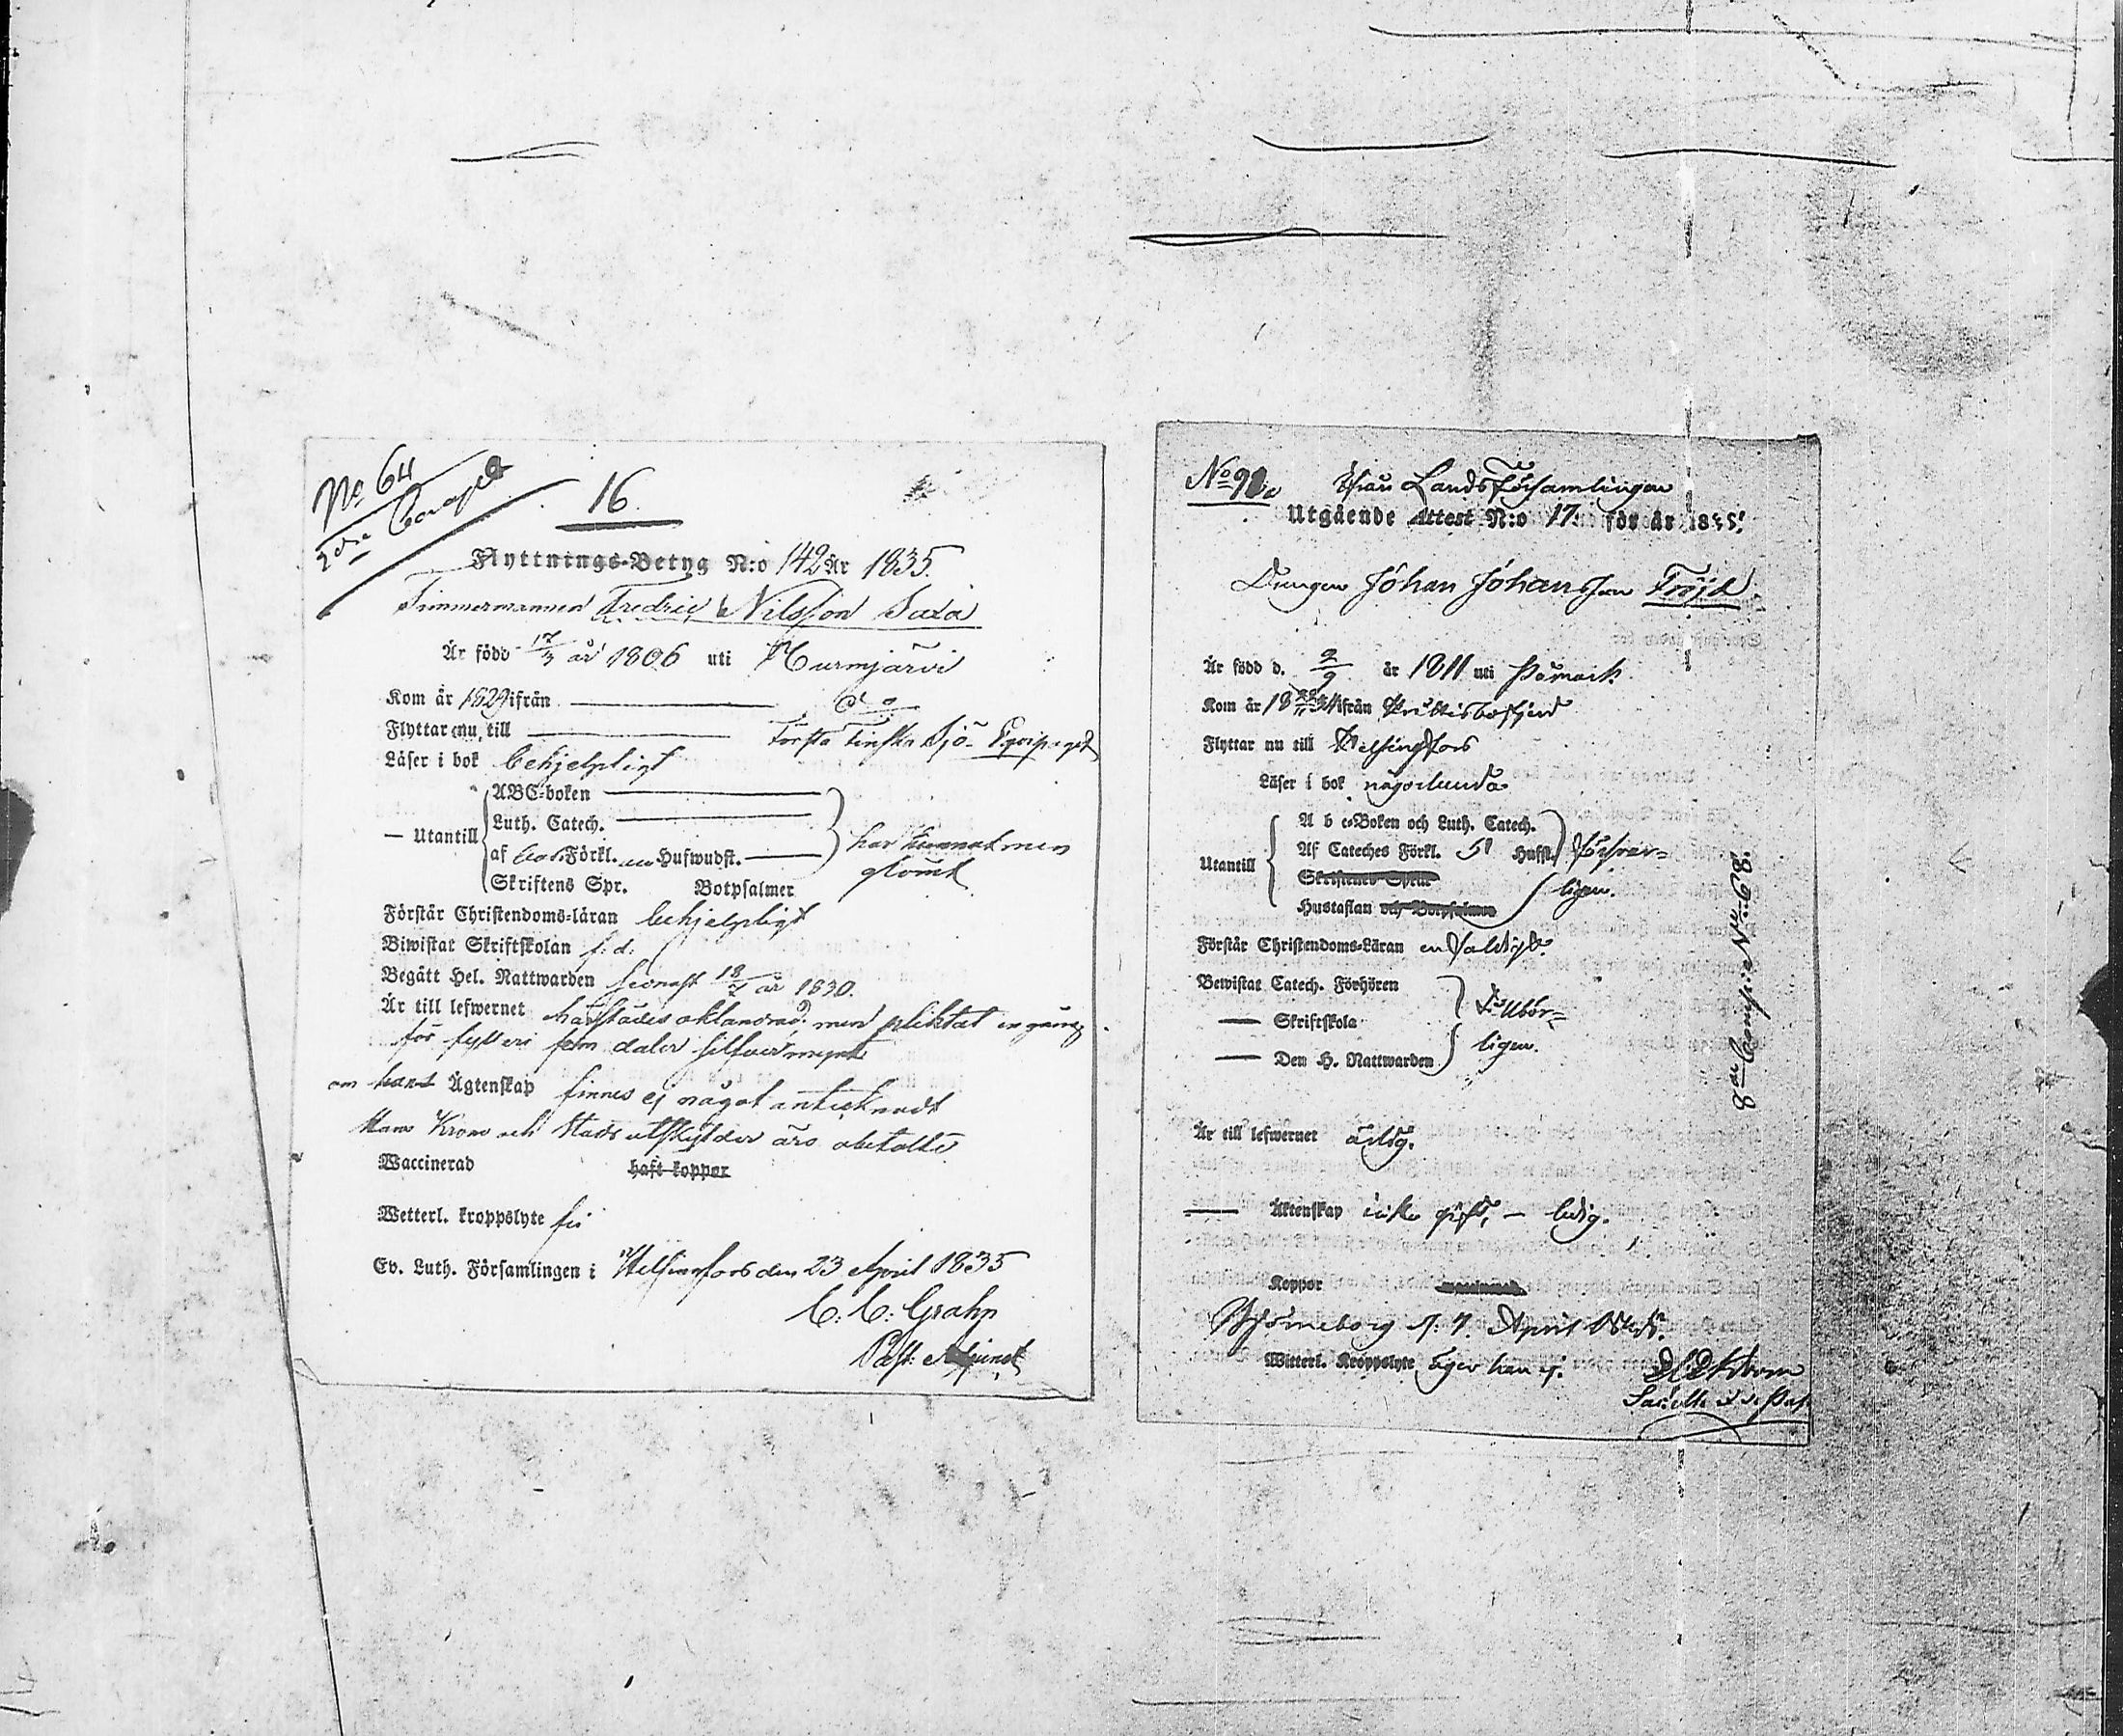 No 64
2dra Comp
16
Flyttnings-Betyg N:o 142 År 1835.
Timmermannen Fredric Nilsson Saxa
Är född 17/3 år 1806 uti Nurmjärvi
Kom år 1829 ifrån do
Flyttar nu till Första Finska Sjö-Equipaget
Läser i bok behjelpligt
Utantill
ABC-boken
Luth. Catech.
af Förkl. Hufwudst.
Skriftens Spr. Botpsalmer
har kunnat men
glömt
Förstår Christendoms-läran behjelpligt
Biwistat Skriftskolan f. d.
Begått Hel. Nattwarden senast 18/4 år 1830.
Är till lefwernet härstädes oklandrad men pliktat en gång
för fylleri fem daler silfvermynt
om hans Ägtenskap finnes ej något antecknadt
Hans Krono och Stads utskylder äro obetalte
Waccinerad haft koppor
Wetterl. kroppslyte fri
Ev. Luth. Församlingen i Helsingfors den 23 April 1835
C. C. Grahn
Past: Adjunct
No 98
Från Lands Församlingen
Utgående Attest N:o 17 för år 1835.
Drengen Johan Johansson Fröjd
Är född d. 2/9 år 1811 uti Påmark
Kom år 18 ifrån
Flyttar nu till Helsingfors
Läser i bok någorlunda
Utantill
A b c-Boken och Luth. Catech.
Af Cateches Förkl. 5 Hufst.
Skriftenes Språk
Hustaflan och Botpsalmer
försvar=
ligen.
Förstår Christendoms-Läran enfaldigt.
Bewistat Catech. Förhören
Skriftskola
Den H. Nattwarden
tillbör=
ligen.
8de Comp: No 68.
Är till lefwernet ärlig.
Äktenskap icke gift, — ledig.
Koppor
Björneborg d. 7. April 1835.
Witterl. Kroppslyte äger han ej.